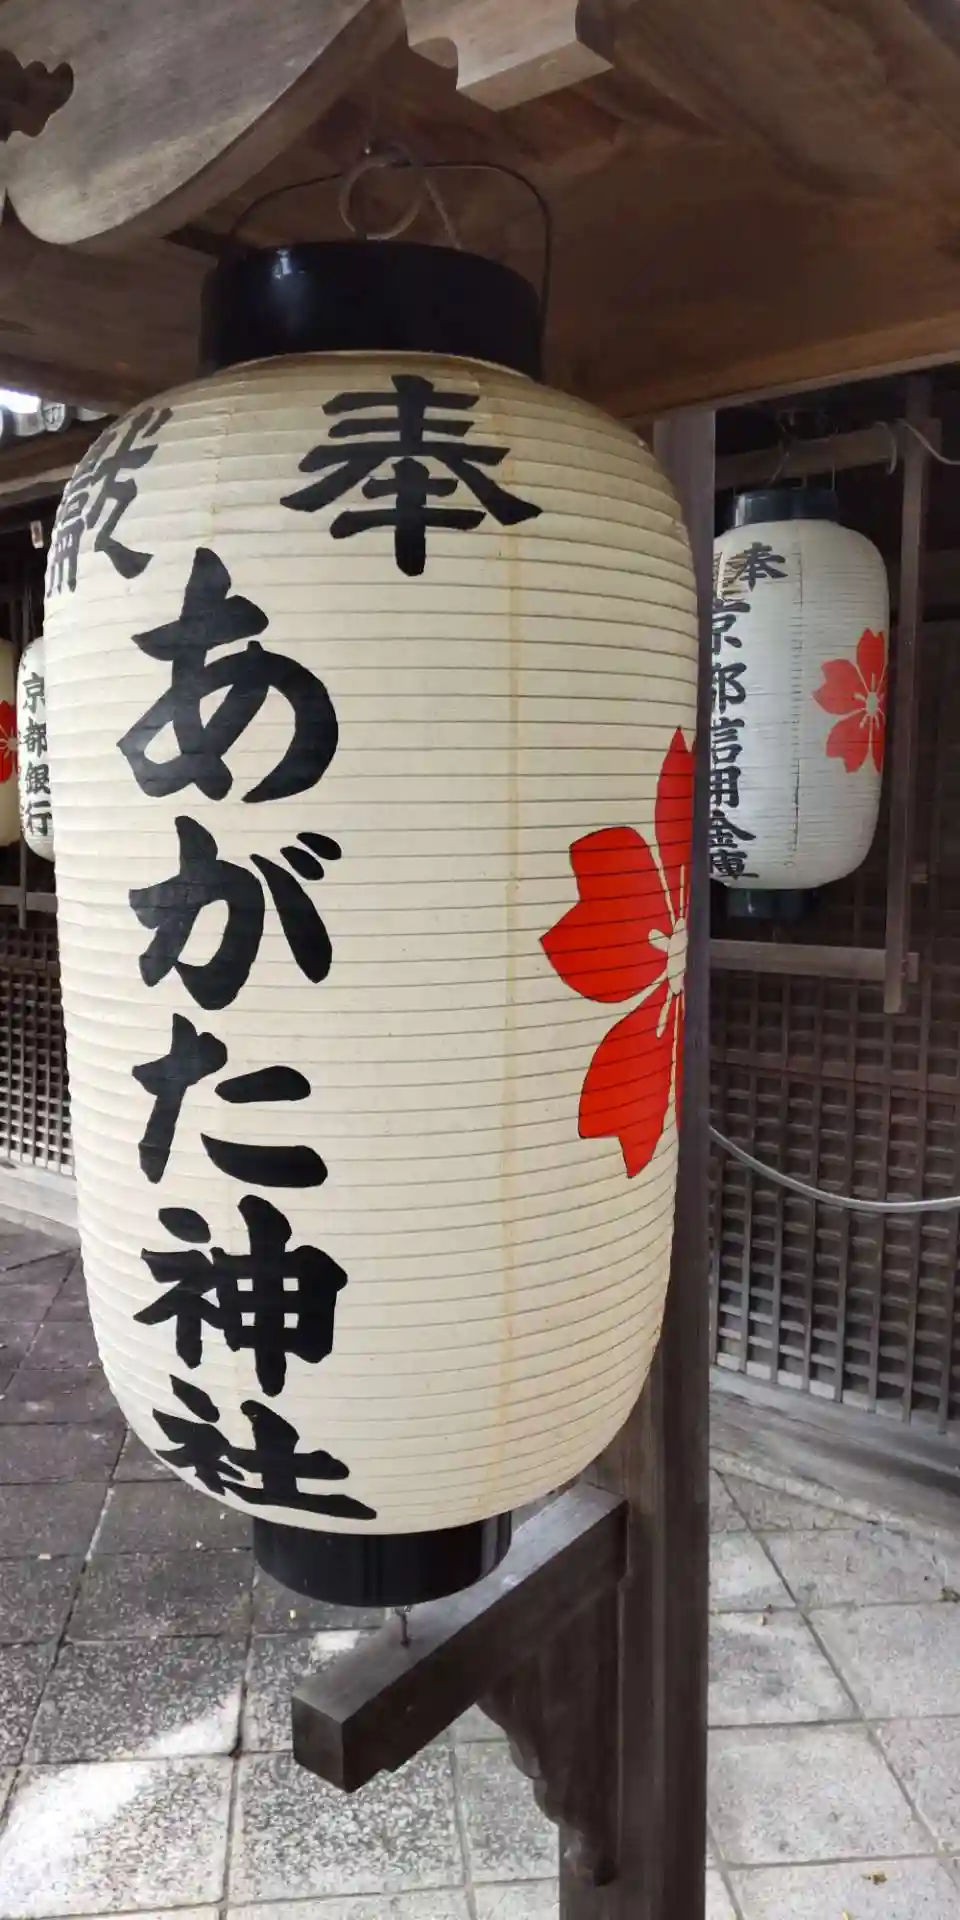 奉
献
あがた神社
奉
京都信用金庫
京都銀行